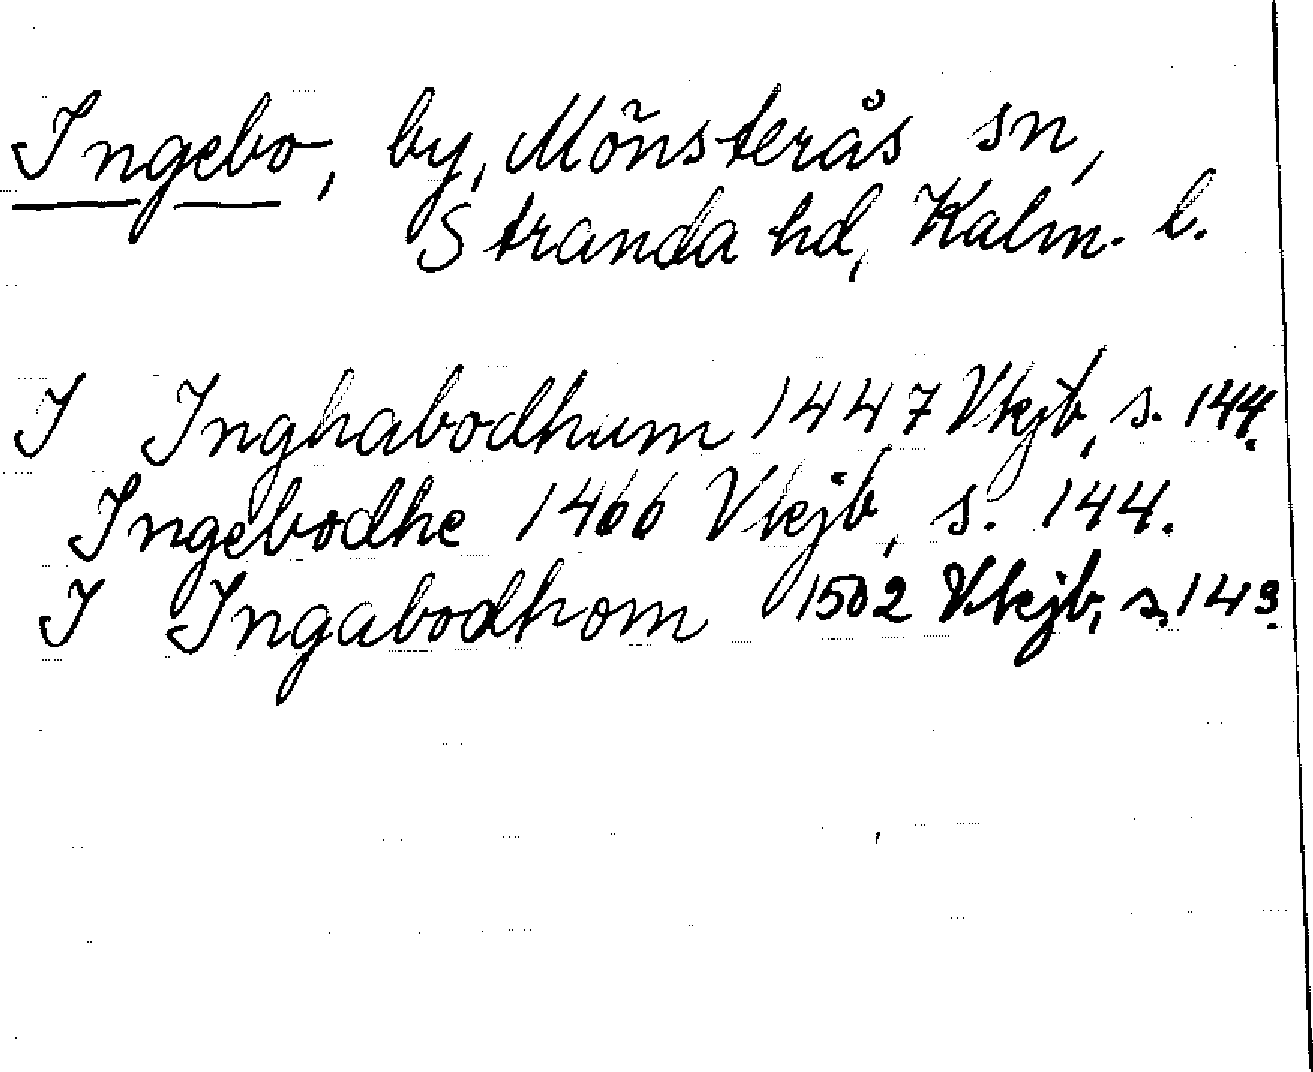 Ingebo, by, Mönsterås sn,
Stranda hd, Kalm. l.
I Inghabodhum 1447 Vkjb, s. 144.
Ingebodhe 1466 Vkjb, s. 144.
I Ingabodhom 1502 Vkjb, s. 149.